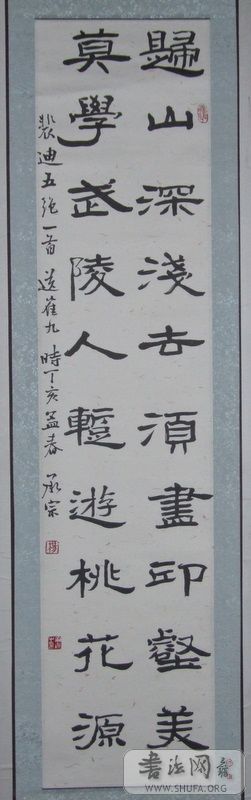 歸山深淺去湏盡邱壑美
莫學武陵人暫遊桃花源
裴迪五绝一首 送崔九 時丁亥孟春 承宗
書法网
WWW.SHUFA.ORG